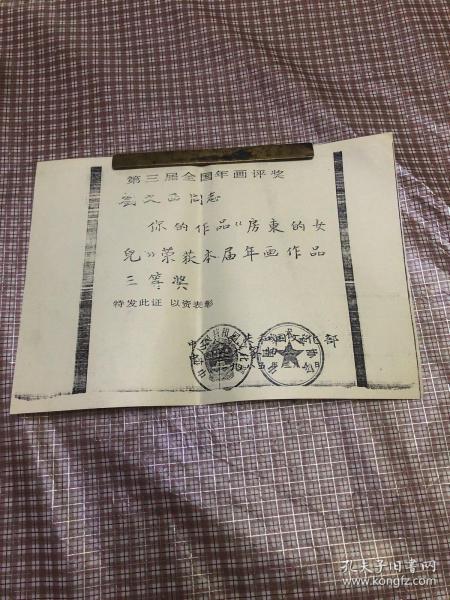 第三届全国年画评奖
刘文西同志
你的作品《房東的女
兒》荣获本届年画作品
三等奖
特发此证 以资表彰
中华人民共和国文化部
孔夫子旧书网
www.kongfz.com